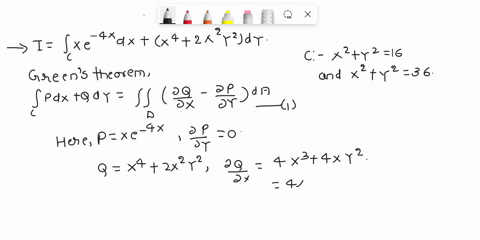 → I = ∫_C xe^{-4x} dx + (x^4 + 2x^2y^2) dy.
C:- x^2 + y^2 = 16
and x^2 + y^2 = 36.
Green's theorem,
∫_C Pdx + Qdy = ∬_D (∂Q/∂x - ∂P/∂y) dA —(1)
Here, P = xe^{-4x}, ∂P/∂y = 0.
Q = x^4 + 2x^2y^2, ∂Q/∂x = 4x^3 + 4xy^2.
= 4